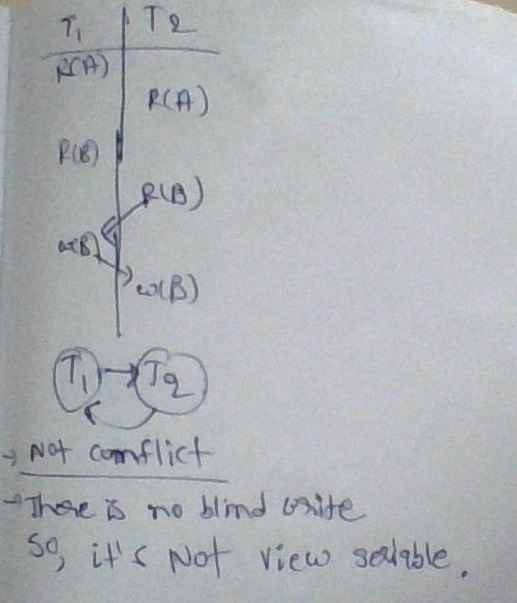 T1 | T2
R(A)
R(A)
R(B)
R(B)
w(B)
w(B)
T1 → T2
→ Not comflict
→ There is no blind write
So, it's Not view serlable.